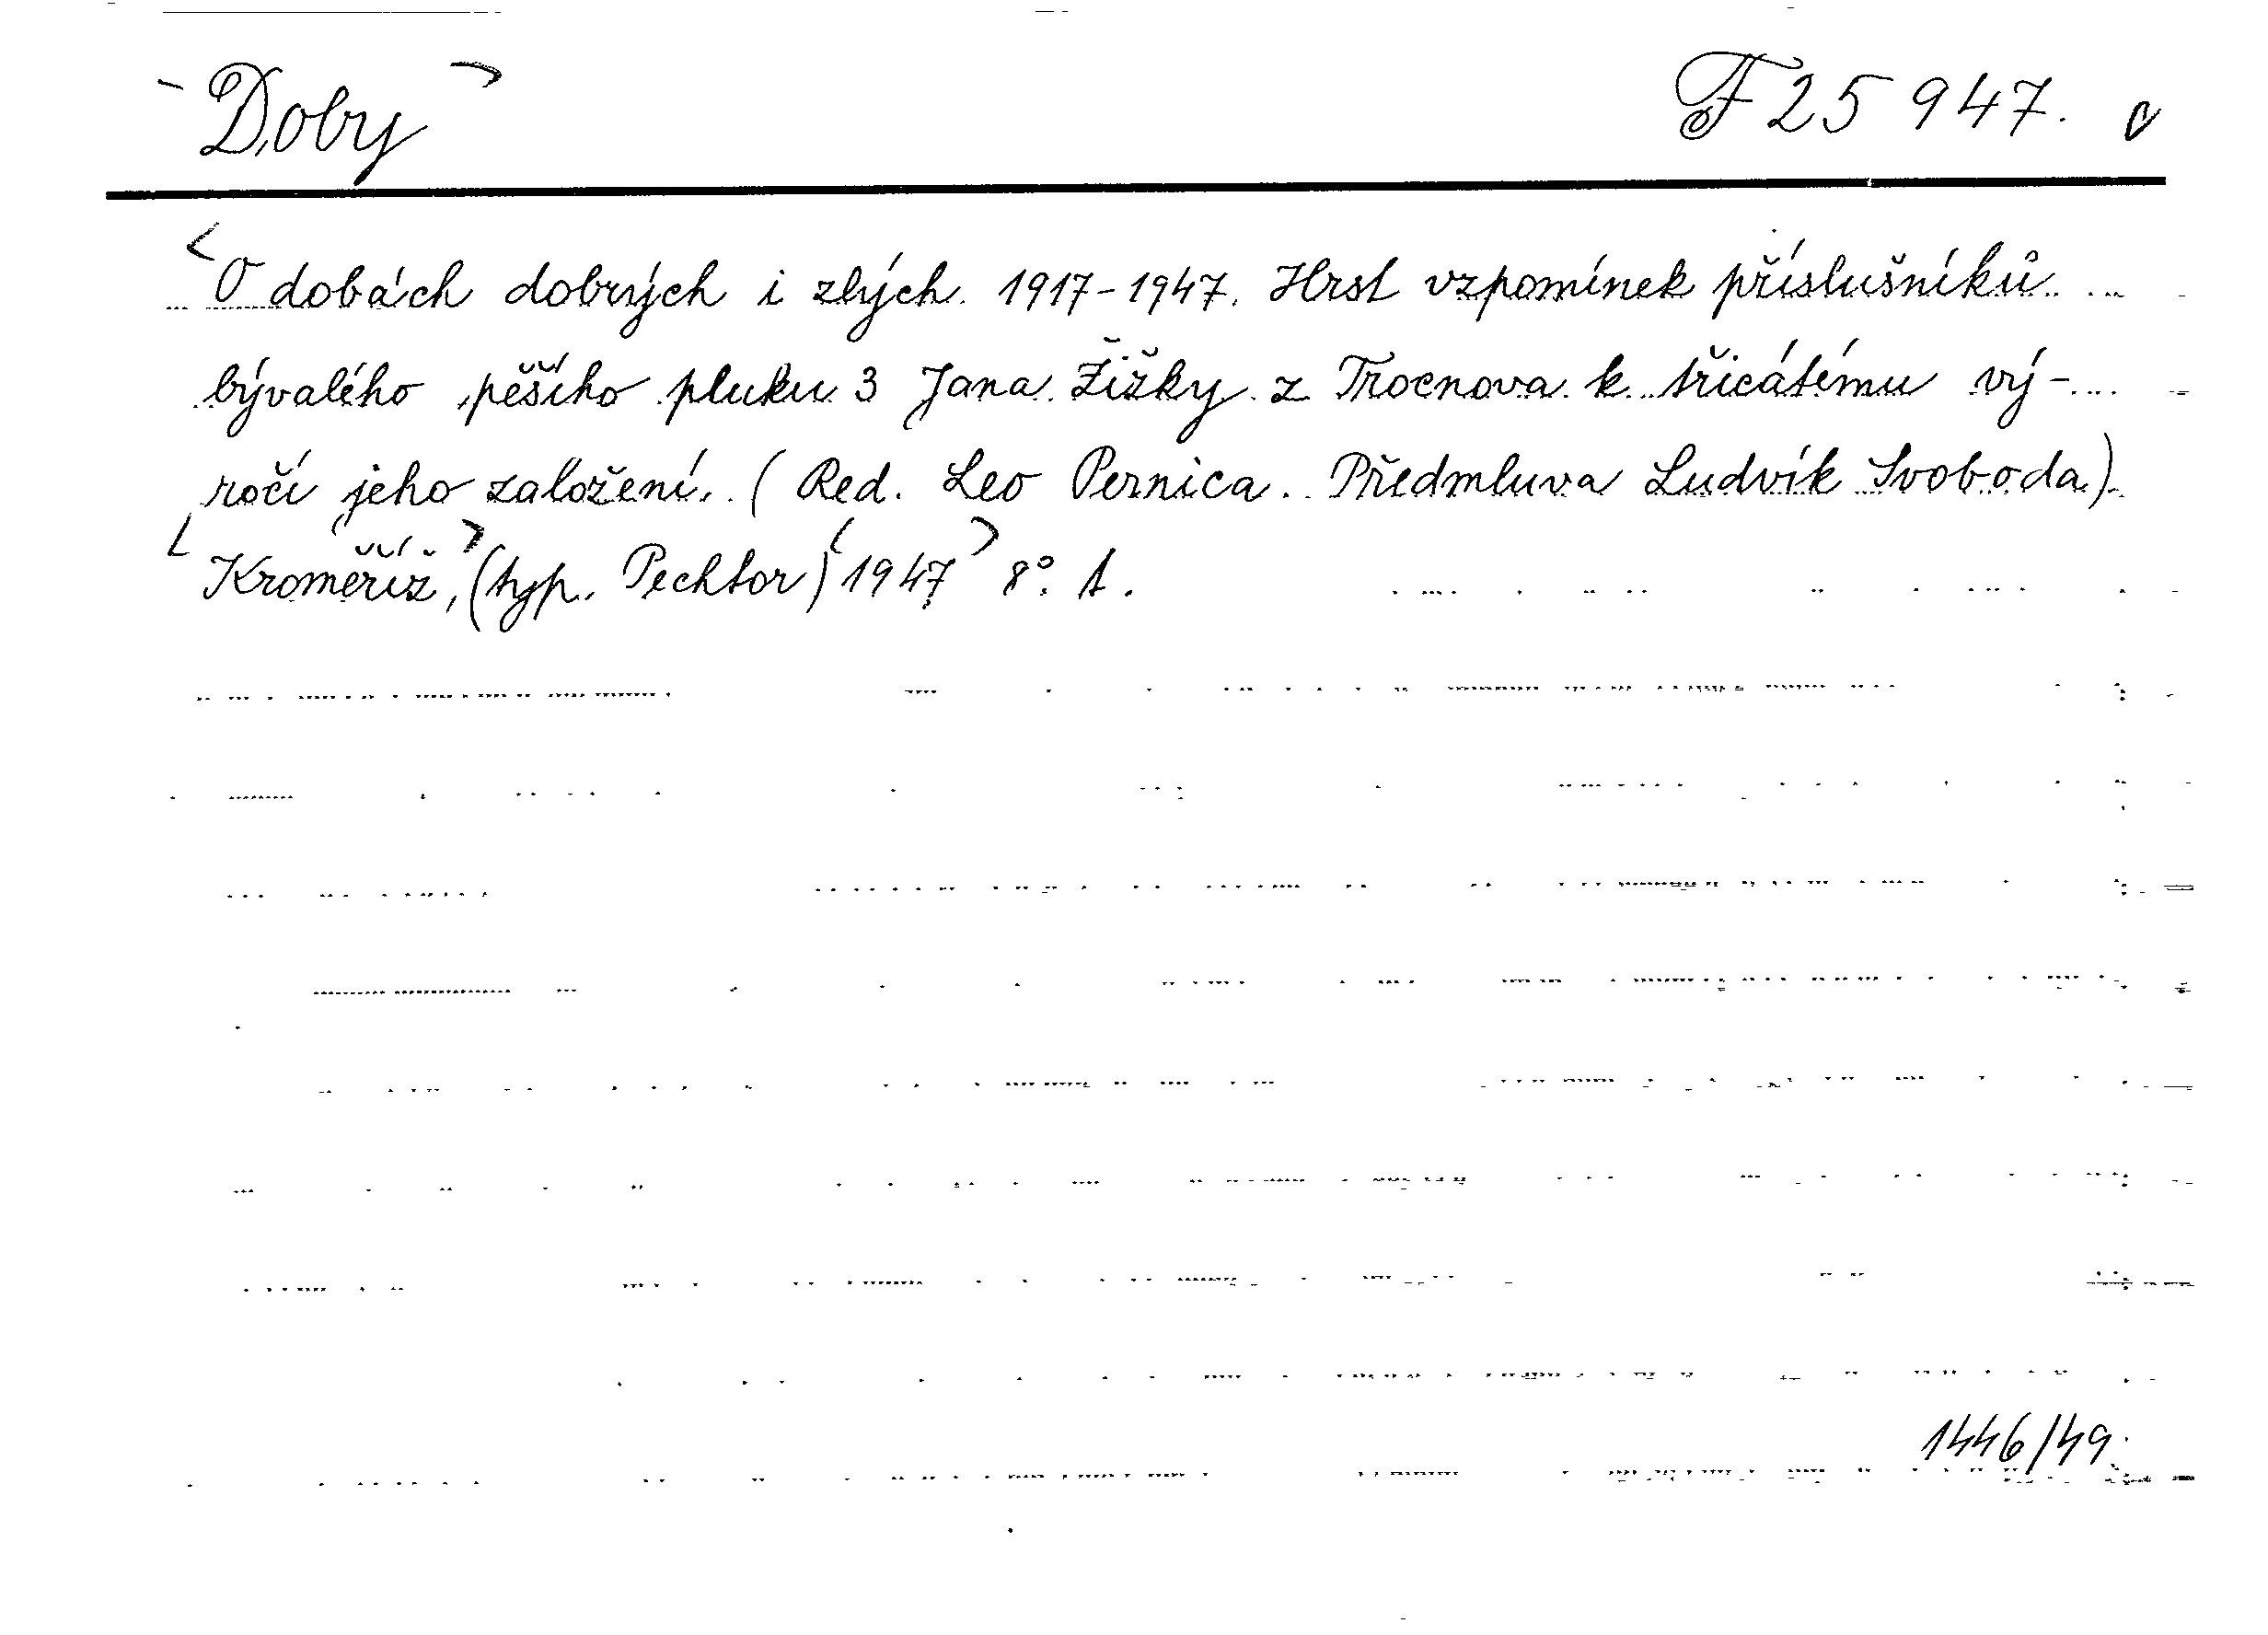 Doby F 25 947. v
O dobách dobrých i zlých. 1917-1947. Hrst vzpomínek příslušníků
bývalého pěšího pluku 3 Jana Žižky z Trocnova k třicátému vý-
ročí jeho založení. (Red. Leo Pernica. Předmluva Ludvík Svoboda).
Kroměříž, (typ. Pechtor) 1947 8°. 1.
1446/49.